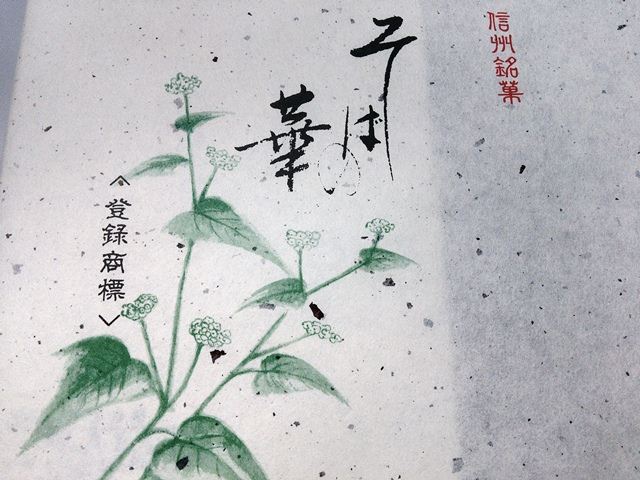 信州銘菓
そば
の
華
〈登録商標〉